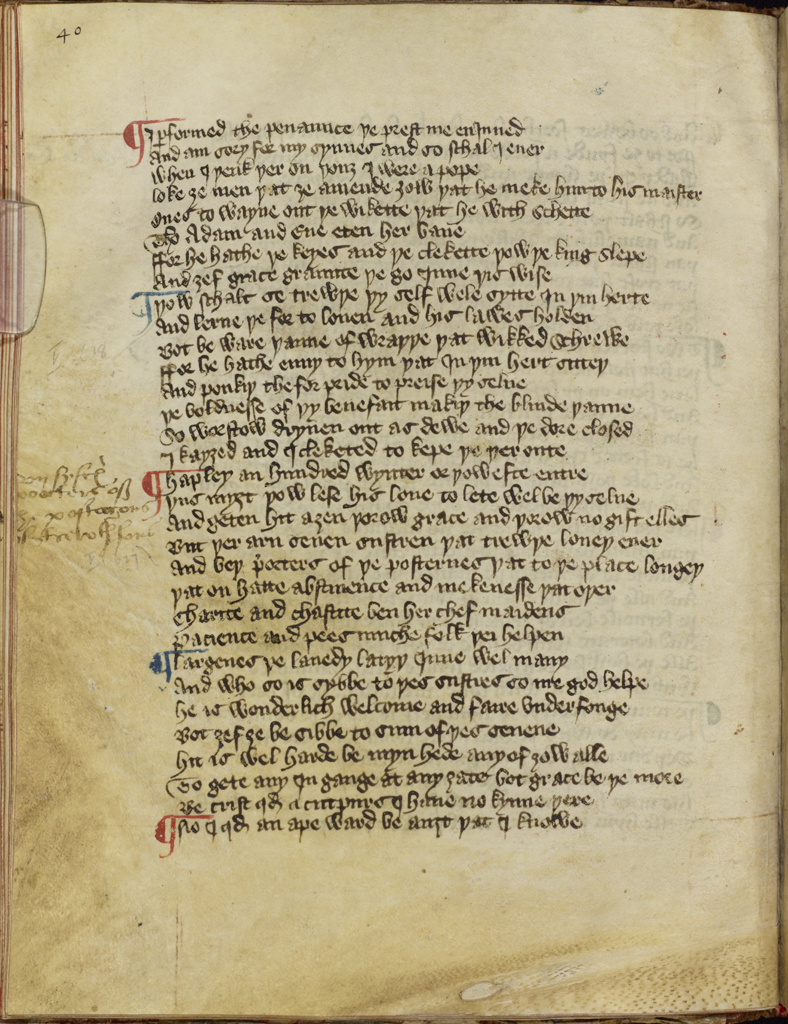 40
I pſformed the penaunce þe preſt me enIuned
And am ſory for my ſynnes and ſo ſchal I euer
When I þenk þer on þouȝ I were a pope
loke ȝe men þat ȝe amende ȝow þat he meke hmto his maiſter
ones to wayue out þe wikette þat he with ſchette
Tho Adam and Eue eten her bane
ffor he hathe þe keyes and þe clekette þow þe king ſlepe
And ȝef grace graunte þe go Inne þis wiſe
þow ſchalt ſe trewþe þy ſelf wele ſytte In þin herte
And lerne þe for to louen and his lawes holden
Bot be ware þanne of wraþþe þat wikked ſchrewe
ffor he hathe enuy to hym þat In þin hert ſitteþ
And ponkiþ the for pride to preiſe þy ſelue
þe boldneſſe of þy benefait makiþ the blinde þanne
So worſtow dryuen out as dewe and þe dore cloſed
I kayȝed and I cleketed to kepe þe þer oute
Hapley an hundred wynter or þow efte entre
þus myȝt þow leſe his loue to lete wel be þy ſelue
And geten hit aȝen þorow grace and þorow no gift elles
But þer arn ſeuen ſuſtren þat trewþe loueþ euer
And beþ porters of þe poſternes þat to þe place longeþ
þat on hatte abſtinence and mekeneſſe þat oþer
Charite and chaſtite ben her chef maidens
Pacience and pees muche folk þei helpen
Largenes þe lauedy latyþ Inne wel many
And who ſo is ſybbe to þes ſuſtres ſo me god helpe
he is wonderlich welcome and faire vnderfonge
Bot ȝef ȝe be ſibbe to ſum of þes ſeuene
hit is wel harde be myn hede any of ȝow alle
To gete any In gange at any ȝate bot grace be þe more
Be criſt qd a cutpurs I haue no kynne þere
No I qd an ape ward be auȝt þat I knowe